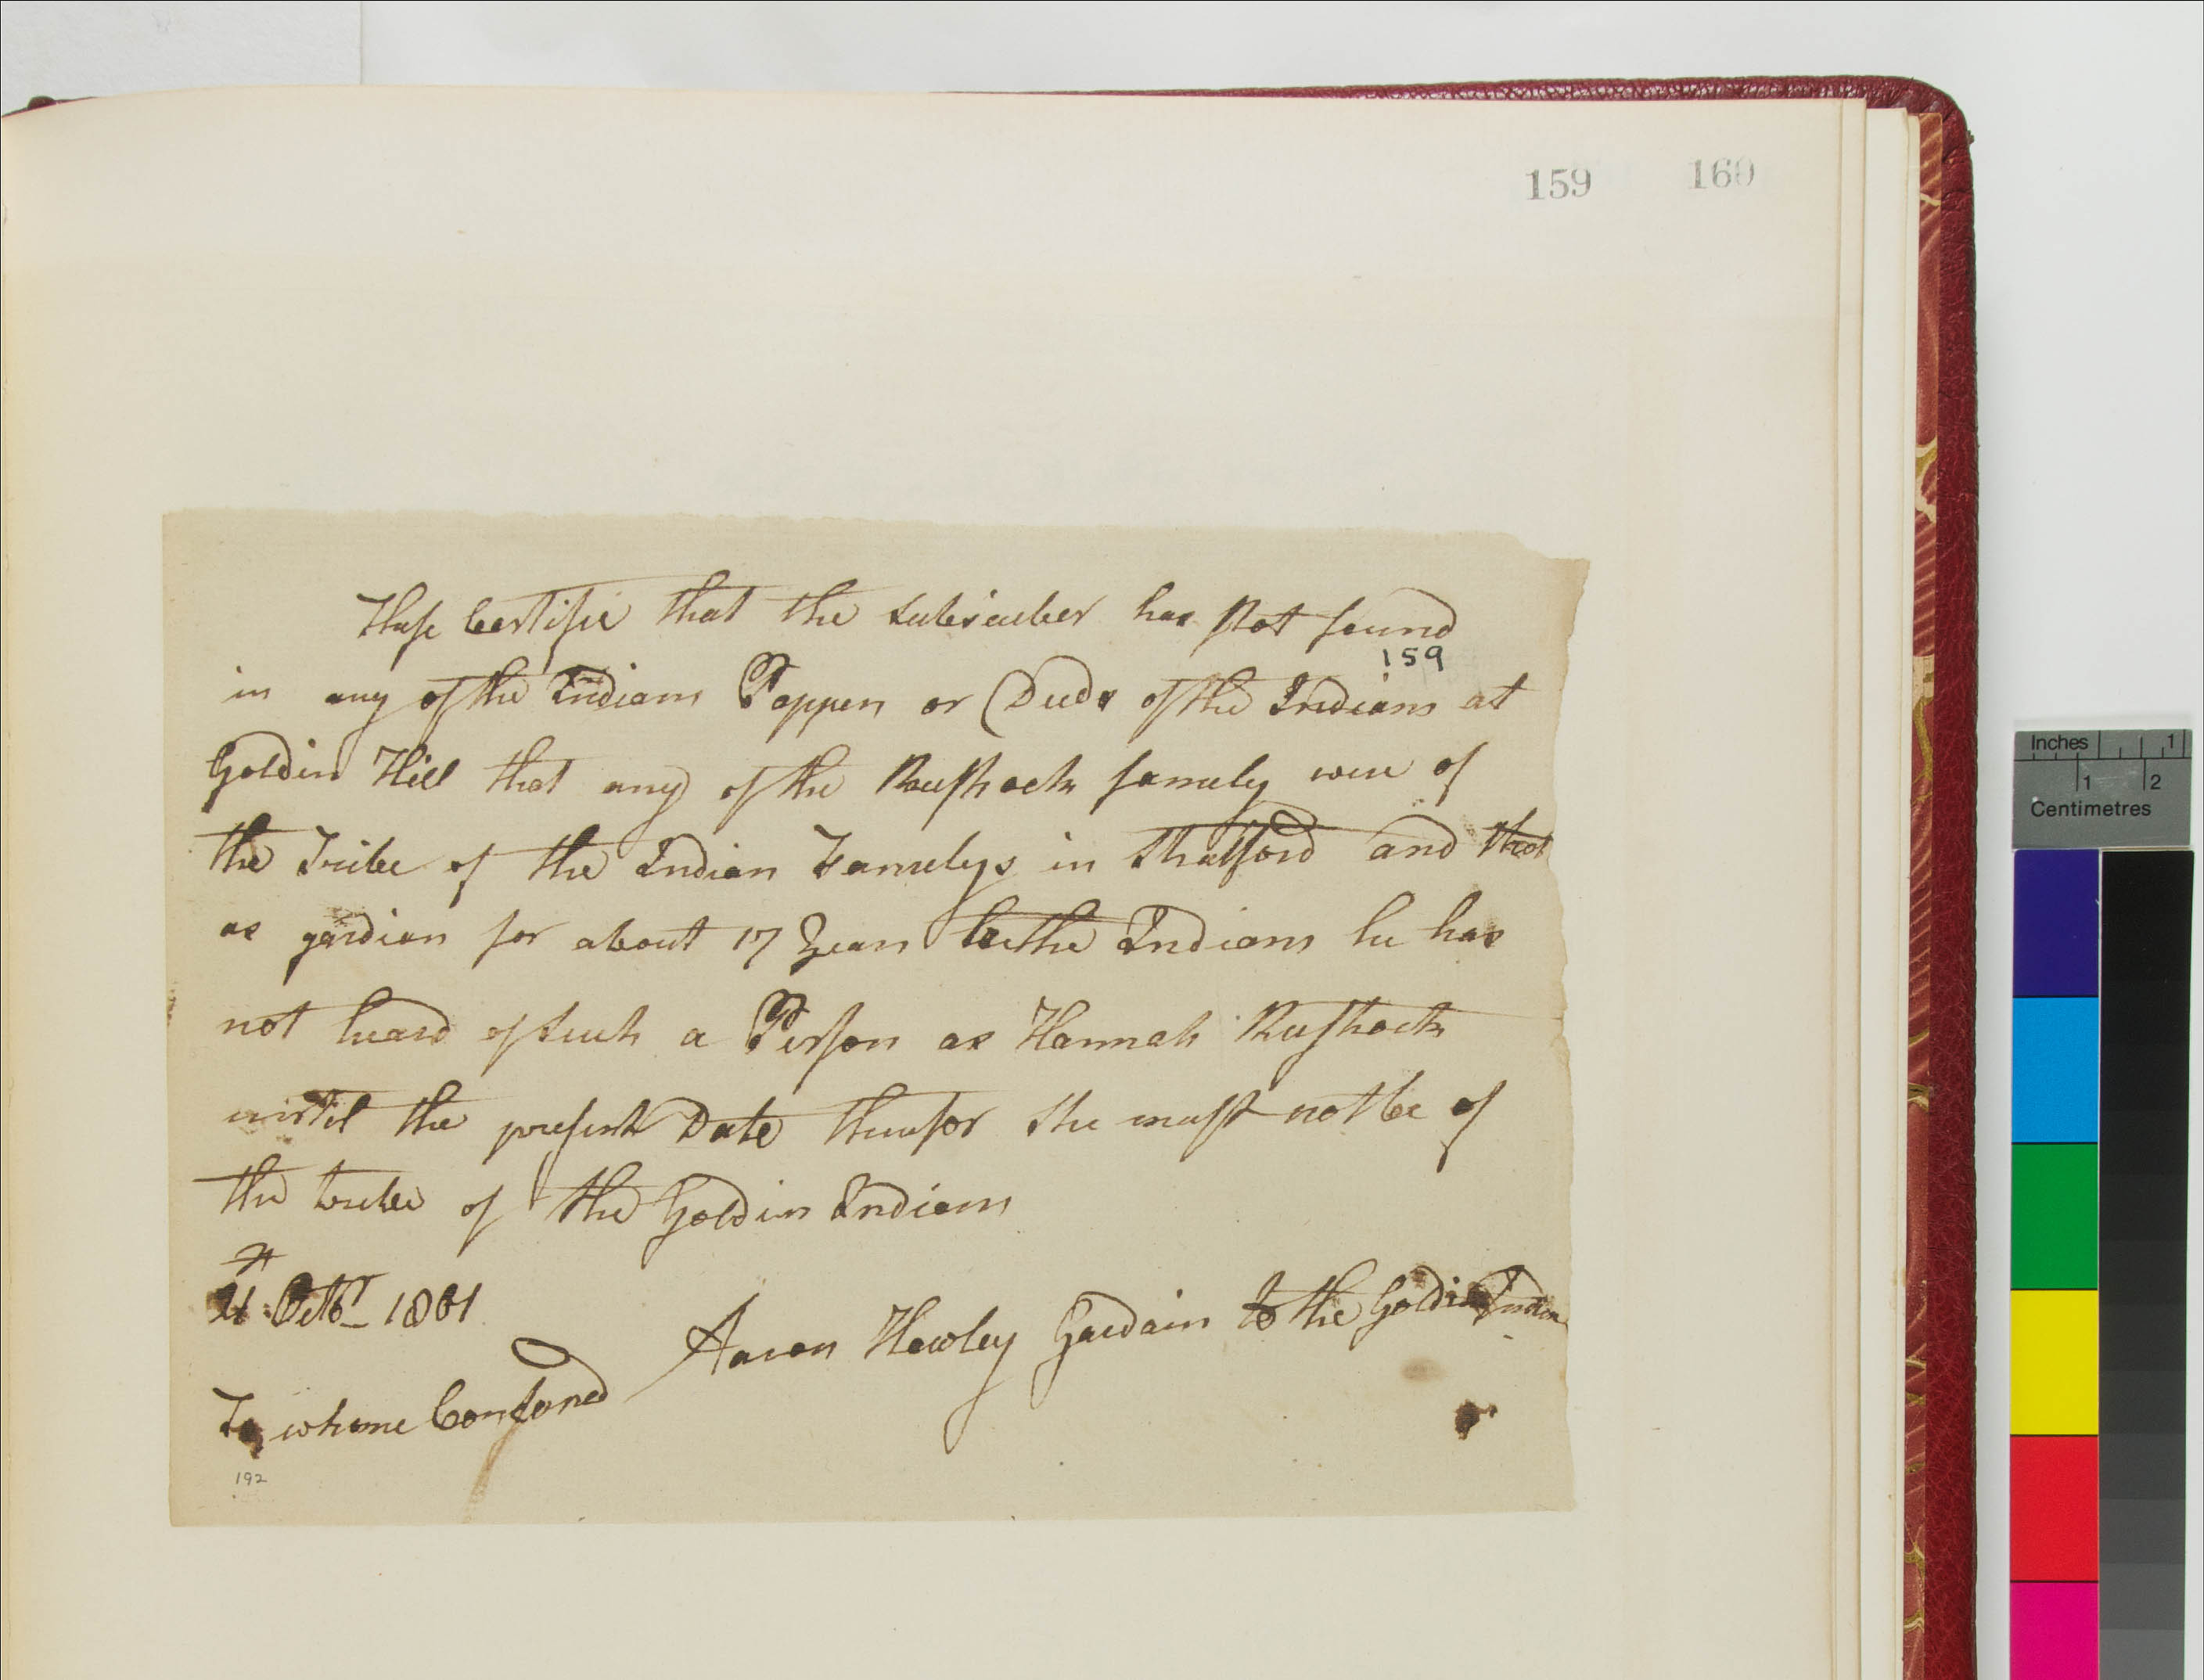 159 160
These Certifie that the subscriber has Not found
159
in any of the Indians Pappers or Deeds of the Indians at
Goldin Hill that any of the Rushock famely were of
the Tribe of the Indian Famelys in Stratford and that
as gardian for about 17 Years to the Indians he has
not heard of such a Person as Hannah Rushock
until the present Date therefor she must not be of
the tribe of the Goldin Indians
Octbr 1801
Aaron Hawley Gardain to the Goldin Indian
To whome Consarned
192
Inches 1
1 2
Centimetres